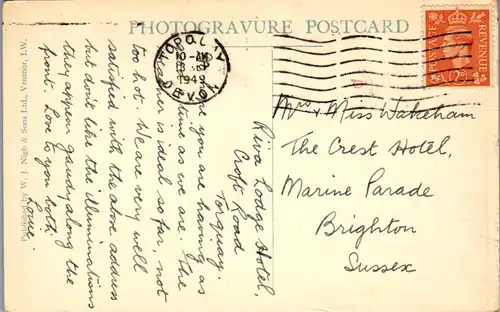 PHOTOGRAVURE POSTCARD
TORQUAY
DEVON
1949
POSTAGE REVENUE
Riva Lodge Hotel,
Croft Road
Torquay.
Hope you are having as
time as we are. The
weather is ideal so far, not
too hot. We are very well
satisfied with the above address
but don't like the illuminations
they appear gaudy along the
front. Love to you both.
Mrs & Miss Wakeham
The Crest Hotel,
Marine Parade
Brighton
Sussex
Published by W. J. Nigh & Sons Ltd., Ventnor, I.W.